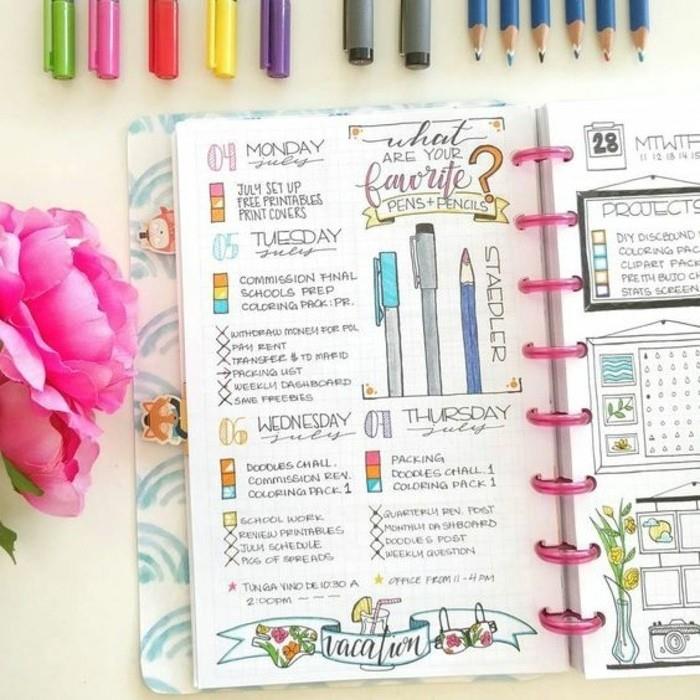 04 MONDAY
july
JULY SET UP
FREE PRINTABLES
PRINT COVERS
what
ARE YOUR
favorite ?
PENS + PENCILS
STAEDLER
05 TUESDAY
july
COMMISSION FINAL
SCHOOLS PREP
COLORING PACK: PR.
WITHDRAW MONEY FOR POL
PAY RENT
TRANSFER $ TO MARID
PACKING LIST
WEEKLY DASHBOARD
SAVE FREEBIES
06 WEDNESDAY
july
DOODLES CHALL.
COMMISSION REV.
COLORING PACK 1
SCHOOL WORK
REVIEW PRINTABLES
JULY SCHEDULE
PICS OF SPREADS
TUNGA VINO DE 10:30 A
2:00PM
07 THURSDAY
july
PACKING
DOODLES CHALL. 1
COLORING PACK 1
QUARTERLY REV. POST
MONTHLY DASHBOARD
DOODLES POST
WEEKLY QUESTION
OFFICE FROM 11-4 PM
vacation
28 MTWTF
11 12 13 14 15
PROJECTS
DIY DISCBOUND
COLORING PAC
CLIPART PACK
PRETTY BUJO C
STATS SCREEN